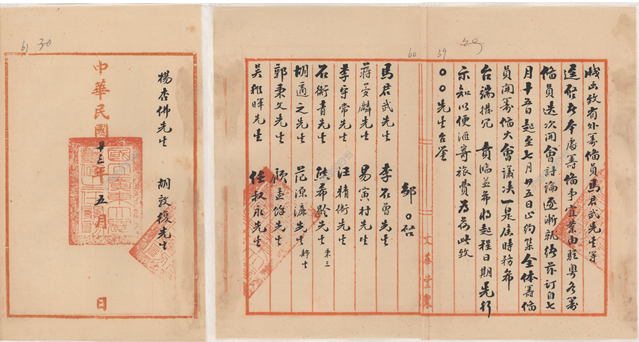 函致省外籌備員馬君武先生等
逕啓者本處籌備事宜業由駐粤各籌
備員迭次開會討論逐漸就緒茲訂自七
月十五日起至七月廿五日止約集全体籌備
員開籌備大會議決一是屆時務希
台端撥冗 賁臨並希將起程日期先行
示知以便滙寄旅費為荷此致
〇〇先生台鑒
鄒〇啓
馬君武先生 李石曾先生
蔣夢麟先生 易寅村先生
李守常先生 汪精衛先生
石衡青先生 熊希齡先生
胡適之先生 范源廉先生
郭秉文先生 顧孟餘先生
吳稚暉先生 任叔永先生
楊杏佛先生 胡敦復先生
中華民國十三年五月 日
59
60
61
30